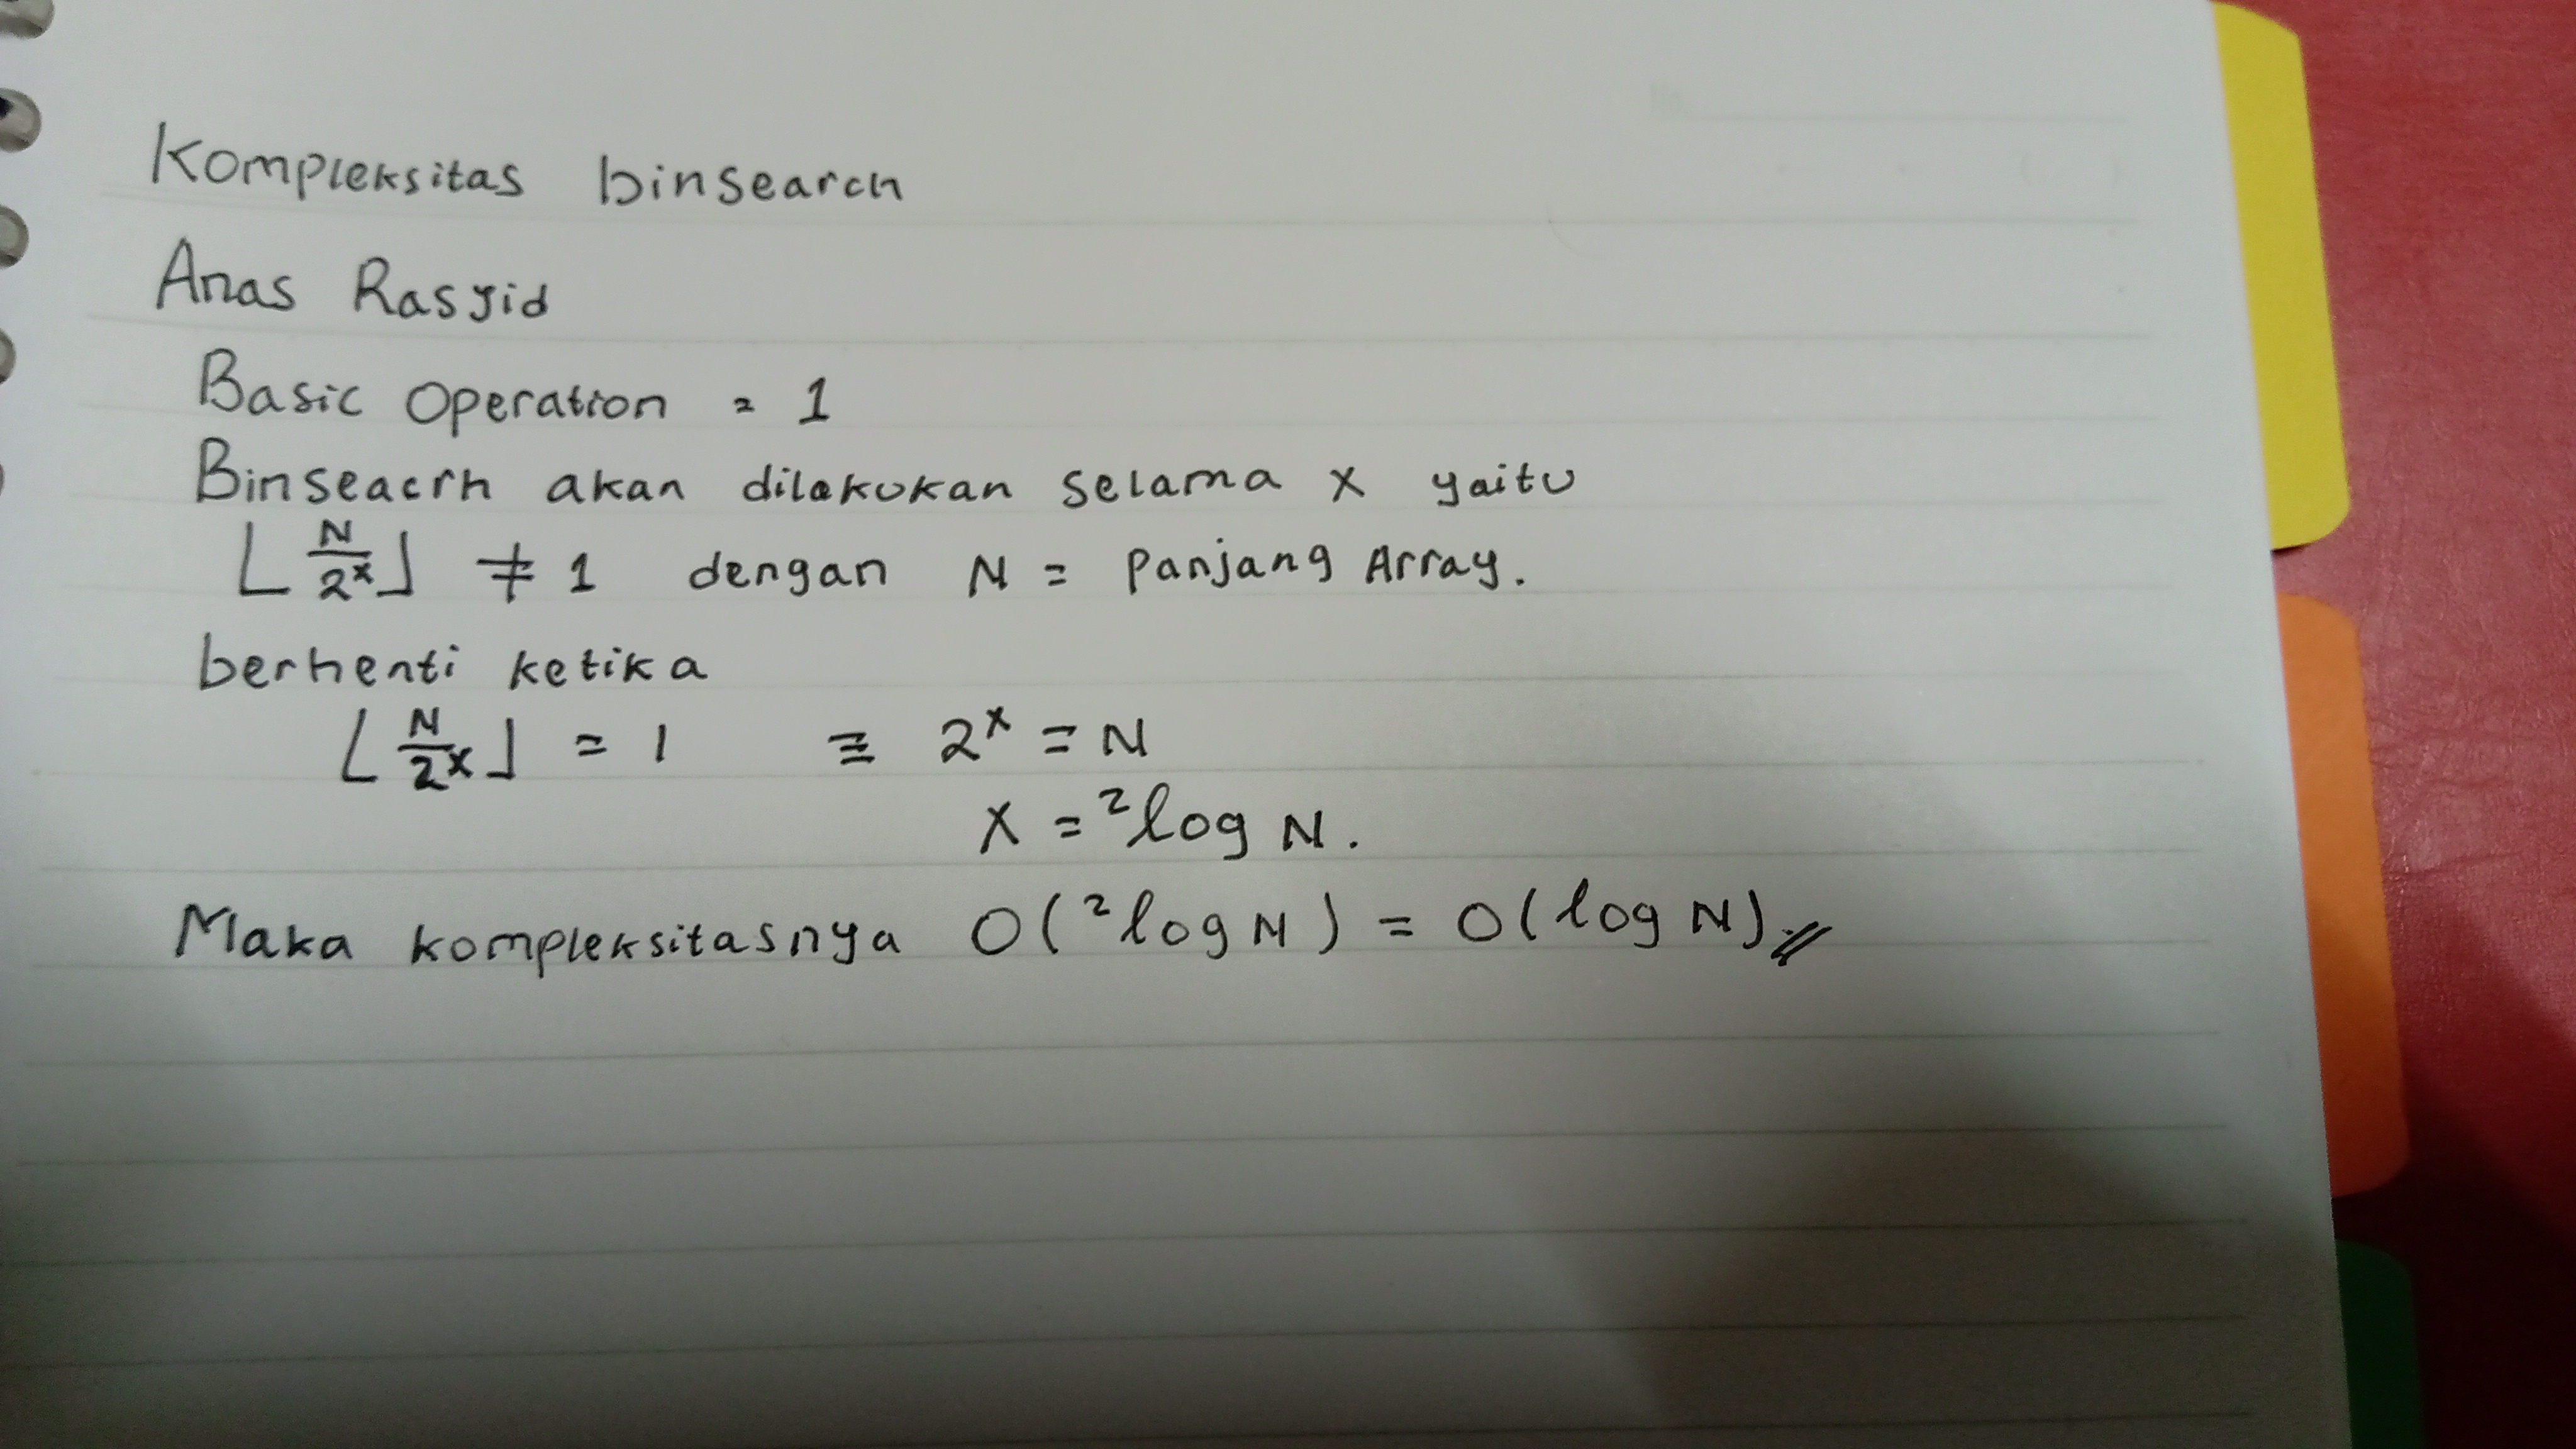 Kompleksitas binsearch
Anas Rasyid
Basic Operation = 1
Binseacrh akan dilakukan selama x yaitu
⌊N/2^x⌋ ≠ 1 dengan N = Panjang Array.
berhenti ketika
⌊N/2^x⌋ = 1 ≡ 2^x = N
x = ²log N.
Maka kompleksitasnya O(²log N) = O(log N)//